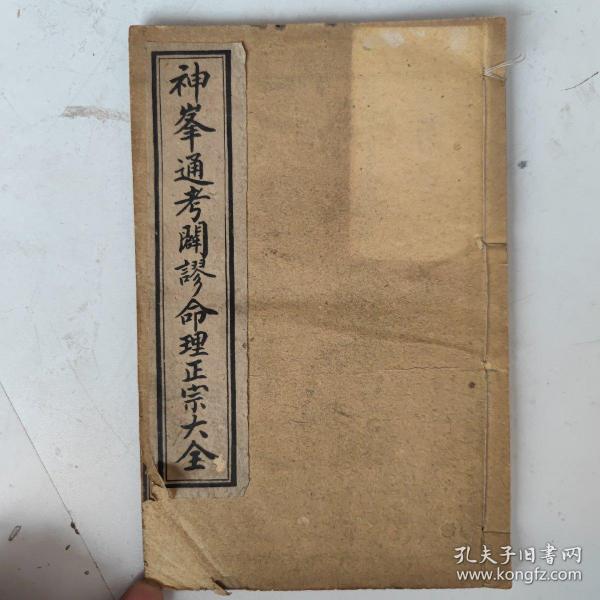 神峯通考闢謬命理正宗大全
孔夫子旧書网
www.kongfz.com